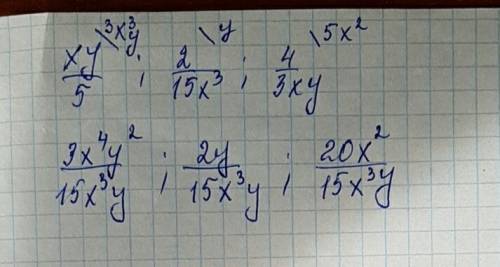 xy/5 \3x³y ; 2/15x³ \y ; 4/3xy \5x²
3x⁴y²/15x³y ; 2y/15x³y ; 20x²/15x³y